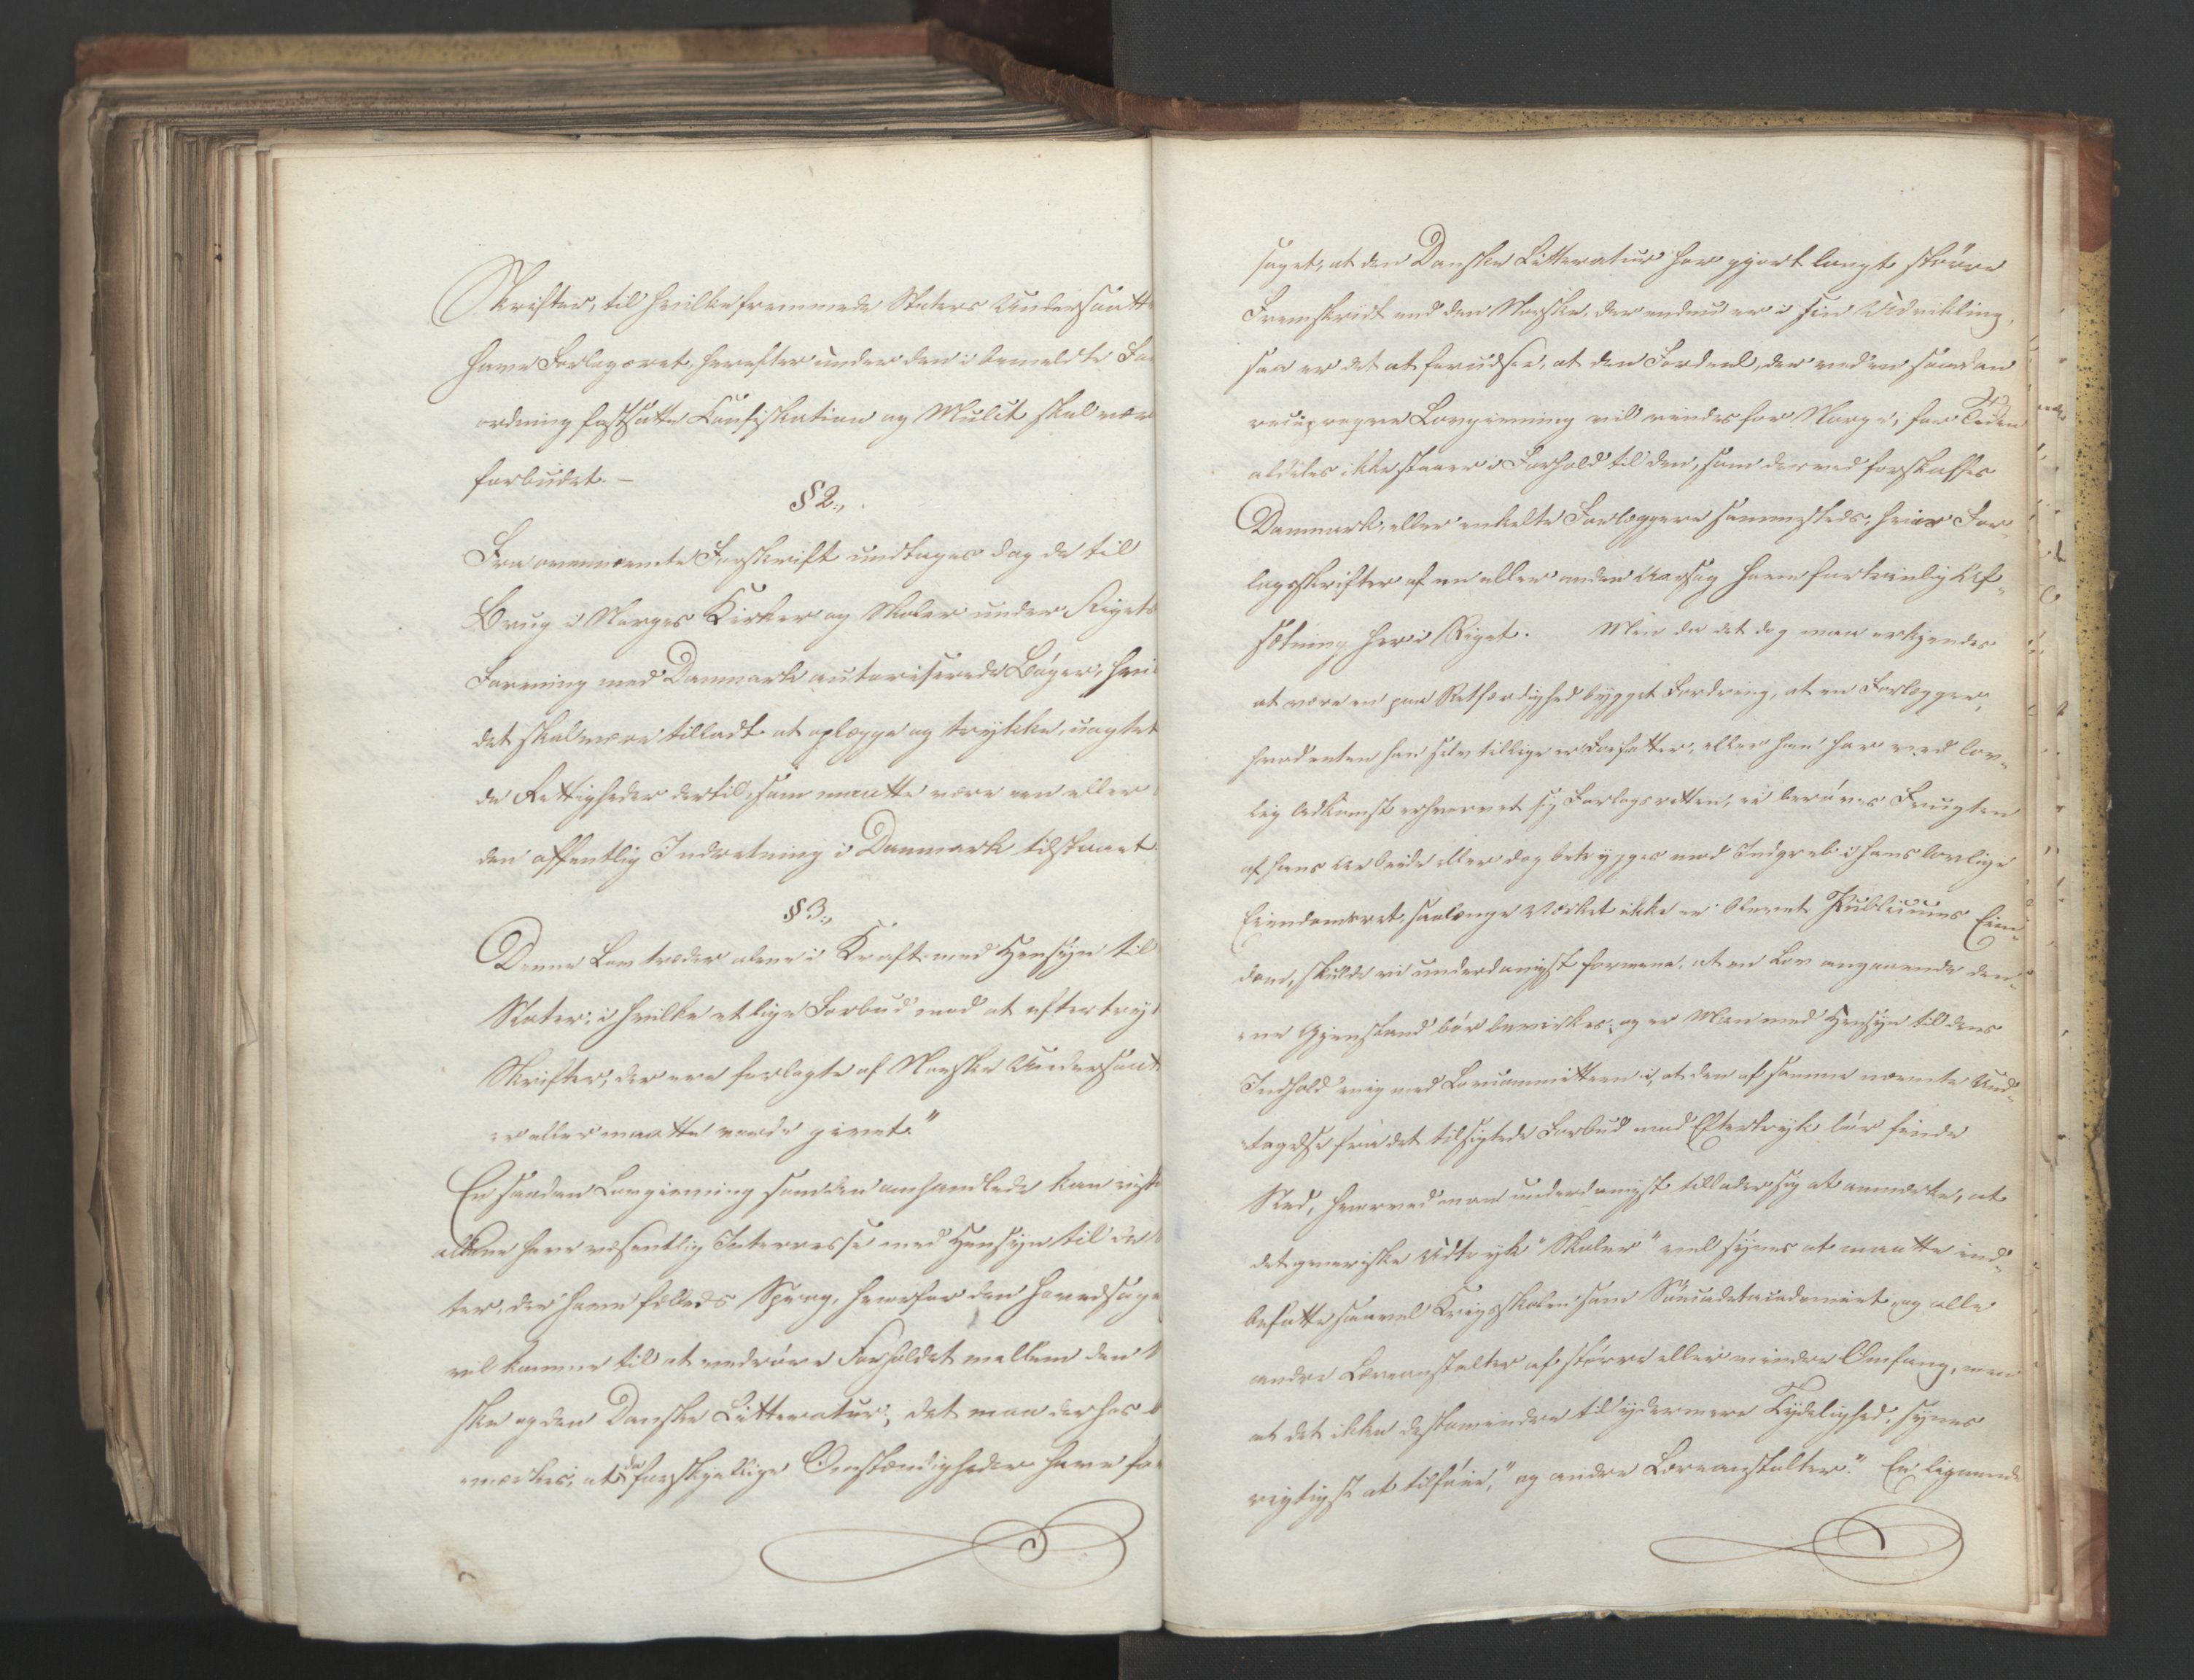 Skrifter, til hvilke fremmede Staters Undersaatt
have Forlagsret, herefter under den i bemeldte For
ordning fastsatte Confiskation og Mulct skal være
forbudet. –
§ 2.,
Fra ovennævnte Forskrift undtages dog de til
Brug i Norges Kirker og Skoler under Rigets
Forening med Danmark autoriserede Bøger, hvil
det skal være tilladt at oplægge og trykke, uagtet
de Rettigheder dertil, som maatte være een eller
den offentlig Indretning i Danmark tilstaaet.
§ 3.,
Denne Lov træder alene i Kraft med Hensyn til
Stater, i hvilke et lige Forbud mod at eftertryk
Skrifter, der ere forlagte af Norske Undersaat
er eller maatte vorde givet."
En saadan Lovgivning som den omhandlede kan vist
alene have væsentlig Interesse med Hensyn til de
ter, der have fælleds Sprog, hvorfor den hovedsage
vil komme til at vedrøre Forholdet mellem den N
ske og den Danske Litteratur; det maa derhos
mærkes, at da forskjellige Omstændigheder have for
saget, at den Danske Litteratur har gjort langt større
Fremskridt end den Norske, der endnu er i sin Udvikling,
saa er det at forudsee, at den Fordeel, der ved en saadan
reciproque Lovgivning vil vindes for Norge, for Tiden
aldeles ikke staaer i Forhold til den, som derved forskaffes
Danmark, eller enkelte Forlæggere sammesteds, hvis For-
lagsskrifter af en eller anden Aarsag have fortrinlig Af-
sætning her i Riget. Men da det dog maa erkjendes
at være en paa Retfærdighed bygget Fordring, at en Forlægger,
hvad enten han selv tillige er Forfatter, eller han har ved lov-
lig Adkomst erhvervet sig Forlagsretten, ei berøves Frugten
af hans Arbeide eller dog betrygges mod Indgreb i hans lovlige
Eiendomsret, saalænge Værket ikke er blevet Publicums Eien-
dom, skulde vi underdanigst formene, at en Lov angaaende den-
ne Gjenstand bør bevirkes; og er Man med Hensyn til dens
Indhold enig med Lovcommitteen i, at den af samme nævnte Und-
tagelse fra det tilsigtede Forbud mod Eftertryk bør finde
Sted, hvorved man underdanigst tillader sig at anmærke, at
det generiske Udtryk "Skoler" vel synes at maatte ind-
befatte saavel Krigsskolen som Søecadetacademiet og alle
andre Læreanstalter af større eller mindre Omfang, men
at det ikke destomindre til ydermere Tydelighed, synes
rigtigst at tilføie, "og andre Læreanstalter." En lignende